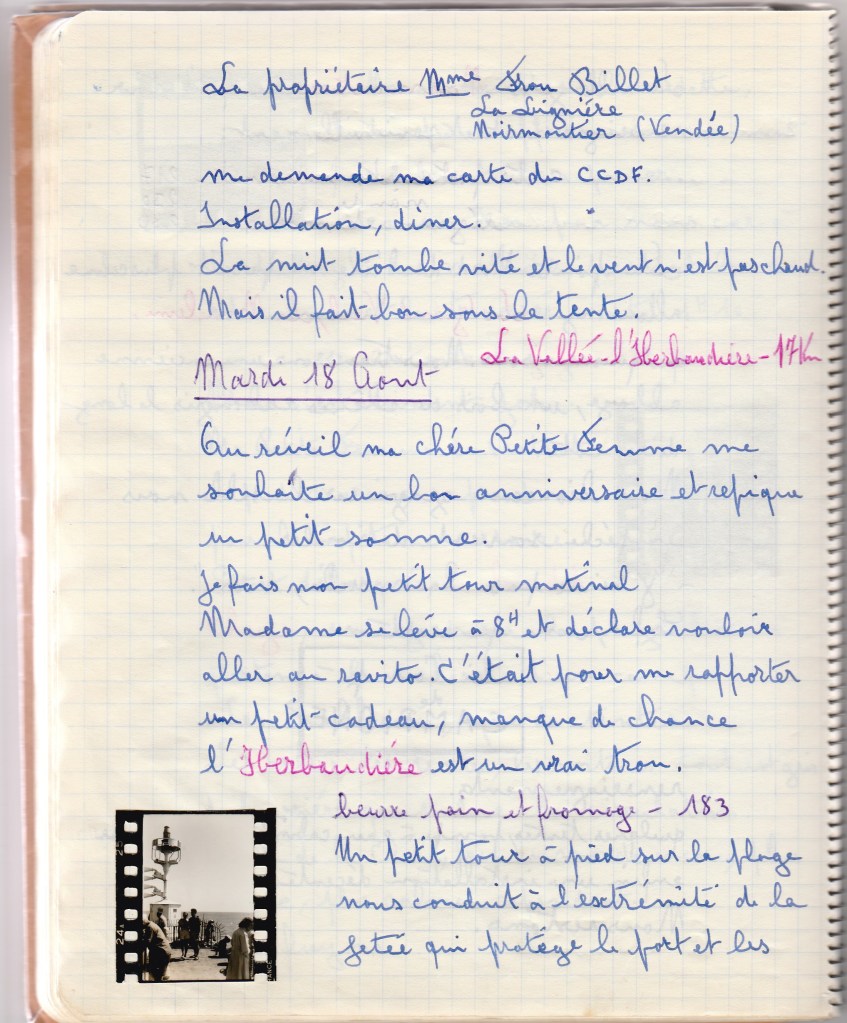 La propriétaire Mme Fron Billet
La Luignière
Noirmoutier (Vendée)
me demande ma carte du CCDF.
Installation, diner.
La nuit tombe vite et le vent n'est pas chaud.
Mais il fait bon sous la tente.
La Vallée - l'Herbaudière - 17 Km
Mardi 18 Aout
Au réveil ma chére Petite Femme me
souhaite un bon anniversaire et repique
un petit somme.
je fais mon petit tour matinal
Madame se léve à 8H et déclare vouloir
aller au ravito. C'était pour me rapporter
un petit cadeau, manque de chance
l'Herbaudiére est un vrai trou.
beurre pain et fromage - 183
Un petit tour à pied sur la plage
nous conduit à l'exctrémité de la
jetée qui protége le port et les